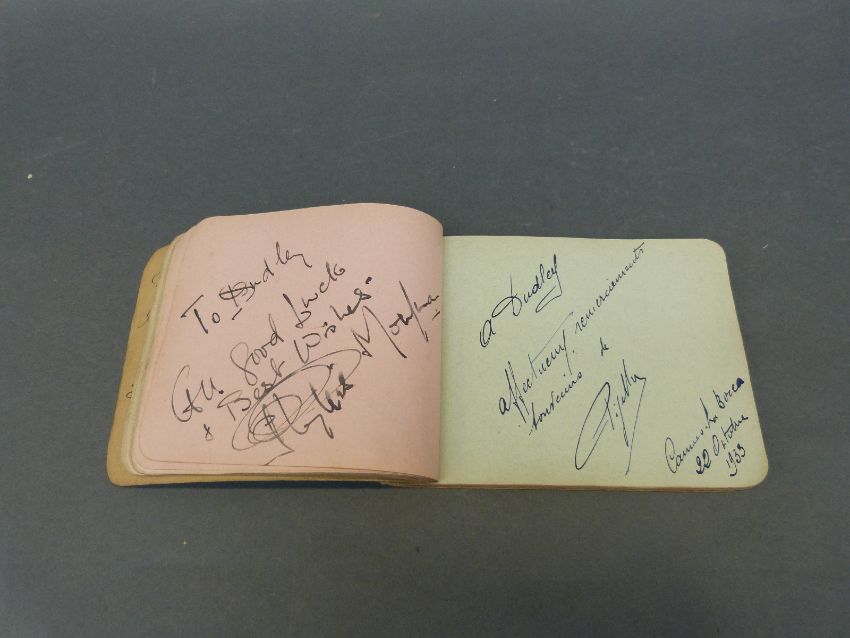 To Dudley
All Good Luck
& Best Wishes.
A Dudley
affectueux remerciements
souvenirs de
Cannes La Bocca
22 Octobre
1953